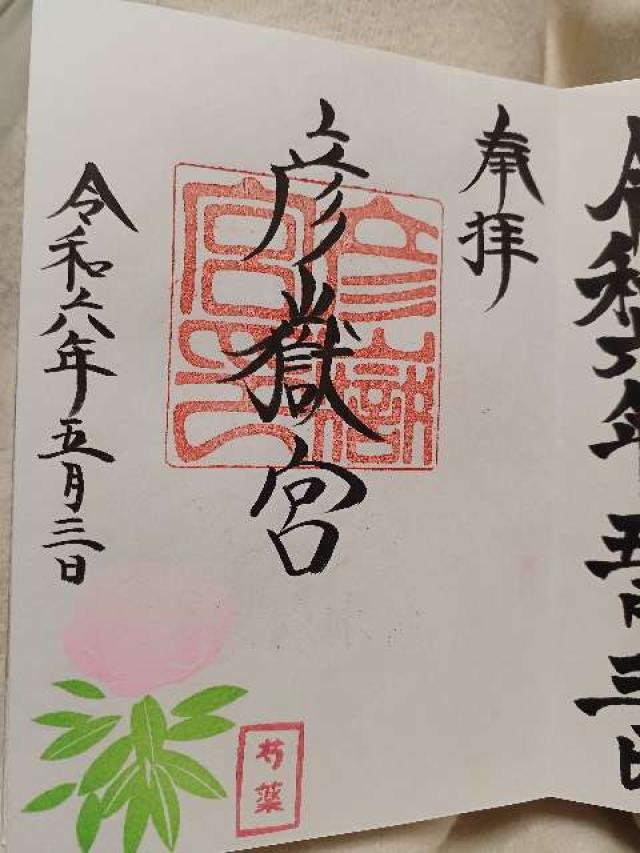 令和六年五月三日
奉拝
彦嶽宮
彦嶽宮印
令和六年五月三日
芍薬